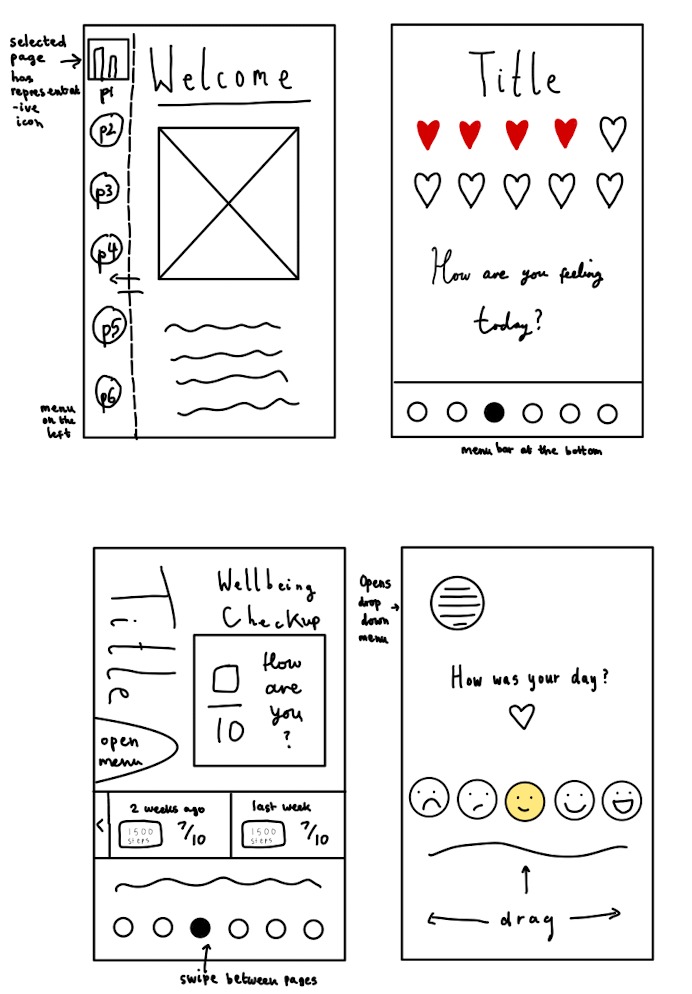 selected
page
has
representat
-ive
icon
p1
p2
p3
p4
p5
p6
menu
on the
left
Welcome
Title
How are you feeling
today?
menu bar at the bottom
Title
Wellbeing
Checkup
How
are
you
?
10
open
menu
2 weeks ago
1500
steps
7/10
last week
1500
steps
7/10
swipe between pages
Opens
drop
down
menu
How was your day?
drag